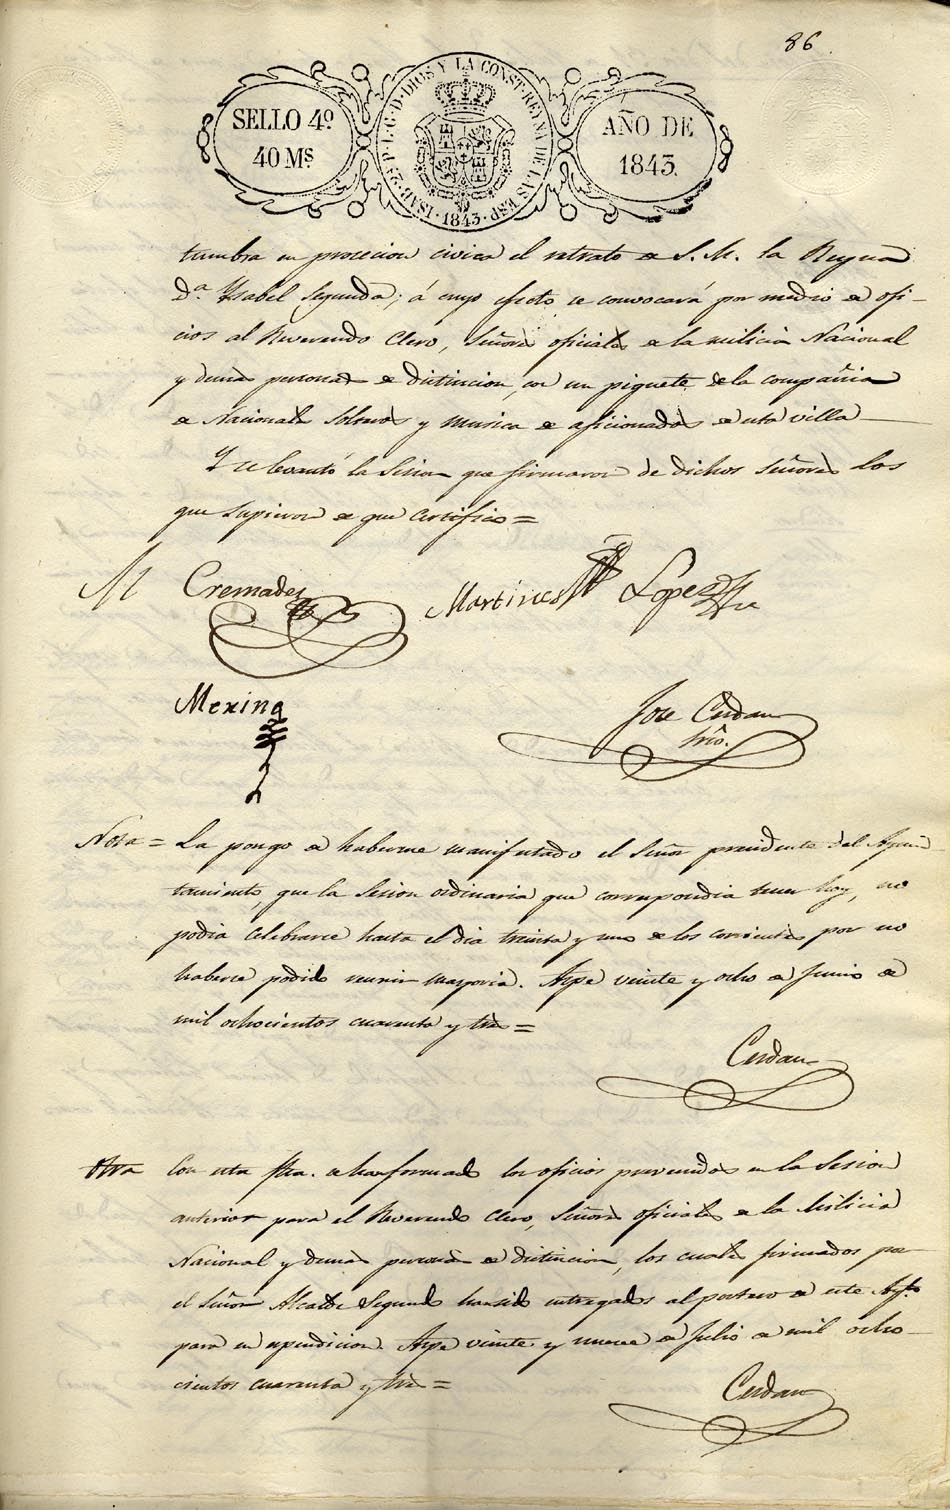 86
SELLO 4º
40 Ms
ISAB. 2ª P. L. G. D. DIOS Y LA CONST. REYNA DE LAS ESP.
1843
AÑO DE
1843.
tumbra en procecion civica el retrato de S. M. la Reyna
D.ª Ysabel Segunda; á cuyo efecto se convocará por medio de ofi-
cios al Reverendo Clero, Señores oficiales de la milicia Nacional
y demas personas de distincion, con un piquete de la compañia
de Nacionales Solteros y musica de aficionados de esta villa
Y se levantó la Sesion que firmaron de dichos Señores los
que supieron de que certifico =
M Cremades Martines Lopez
Mexina
Jose Cerdan
Srio.
Nota = La pongo de haberme manifestado el Señor presidente del Ayun-
tamiento, que la Sesion ordinaria que correspondia tener hoy, no
podia celebrarce hasta el dia treinta y uno de los corrientes por no
haberce podido reunir mayoria. Aspe veinte y ocho de Junio de
mil ochocientos cuarenta y tres =
Cerdan
Otra Con esta fha. se han formado los oficios prevenidos en la Sesion
anterior para el Reverendo Clero, Señores oficiales de la Milicia
Nacional y demas personas de distincion, los cuales firmados por
el Señor Alcalde Segundo han sido entregados al portero de este Aytº
para su espendicion. Aspe veinte y nueve de Julio de mil ocho-
cientos cuarenta y tres =
Cerdan